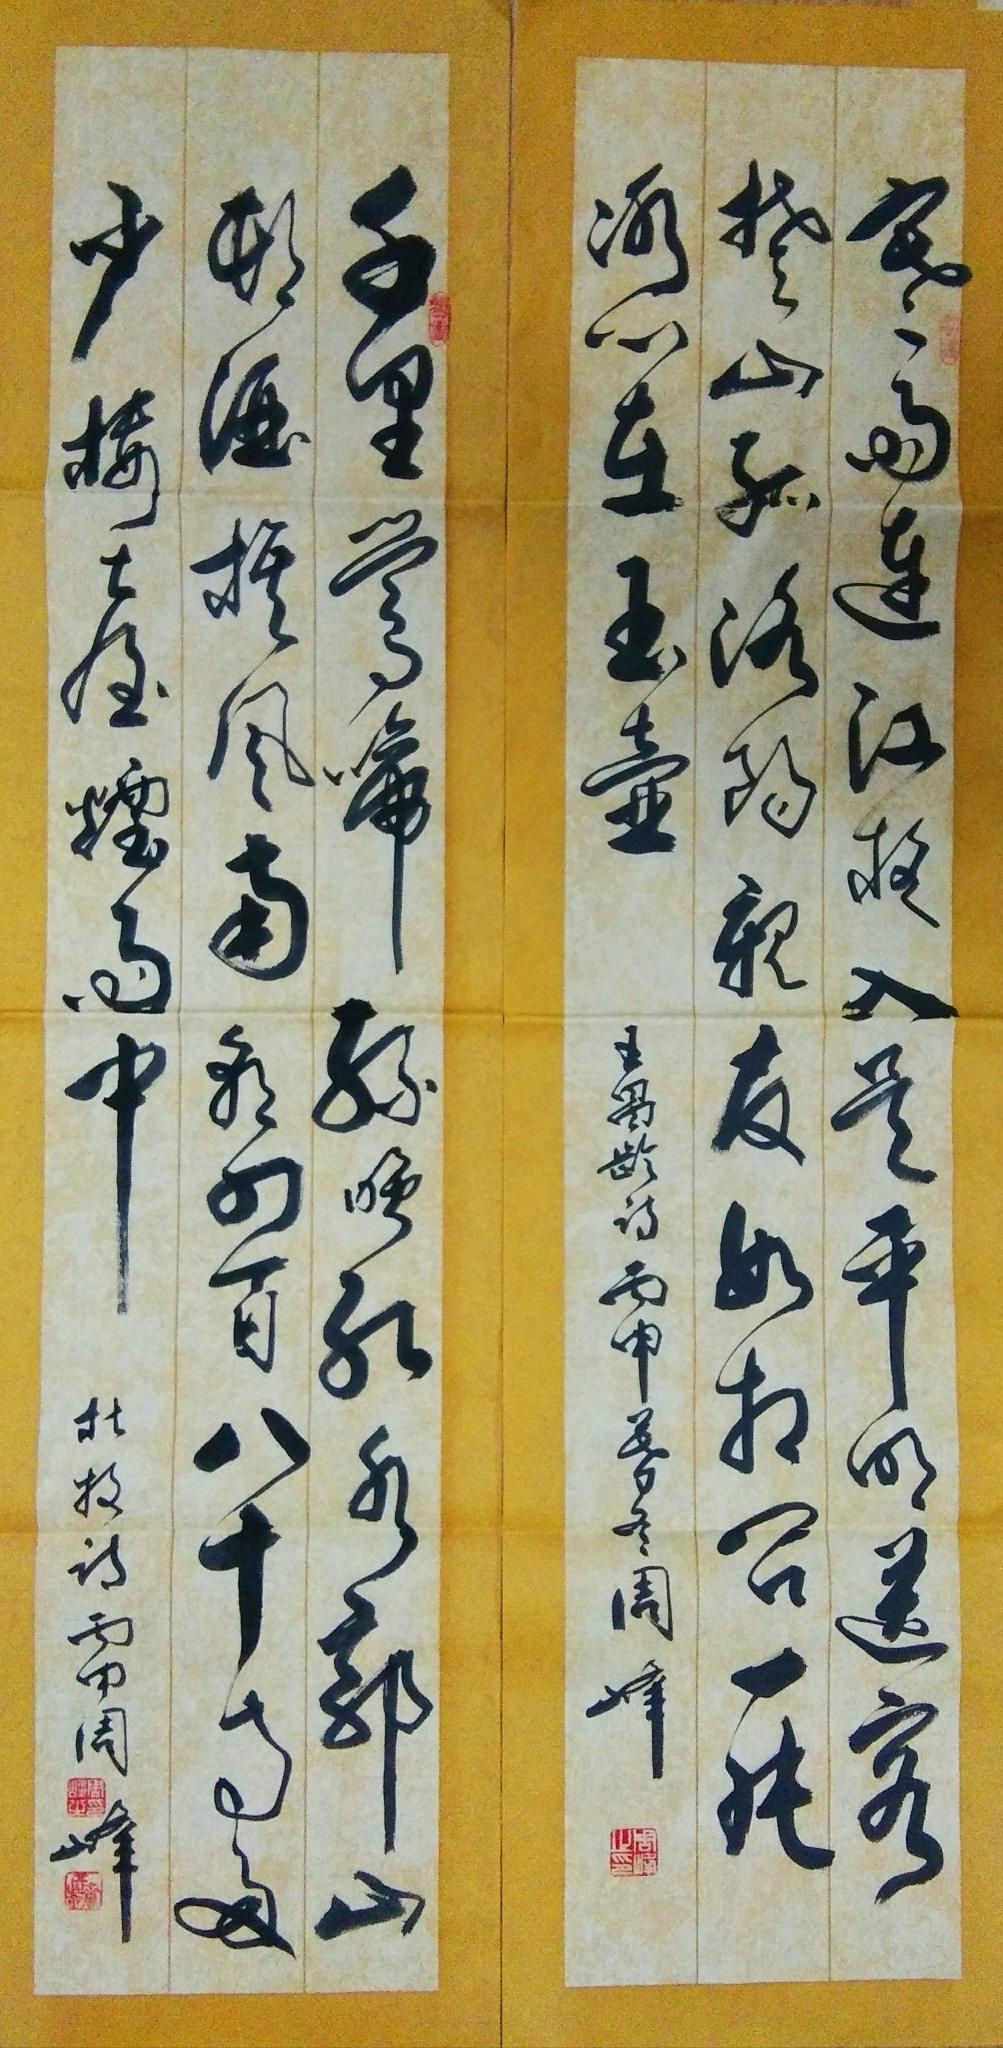 寒雨連江夜入吴平明送客
楚山孤洛陽親友如相问一片
冰心在玉壺 王昌齡诗 丙申暮冬周峰
千里鶯啼綠映紅水郭山
村酒旗風南朝四百八十寺多
少樓台煙雨中 杜牧诗 丙申周峰